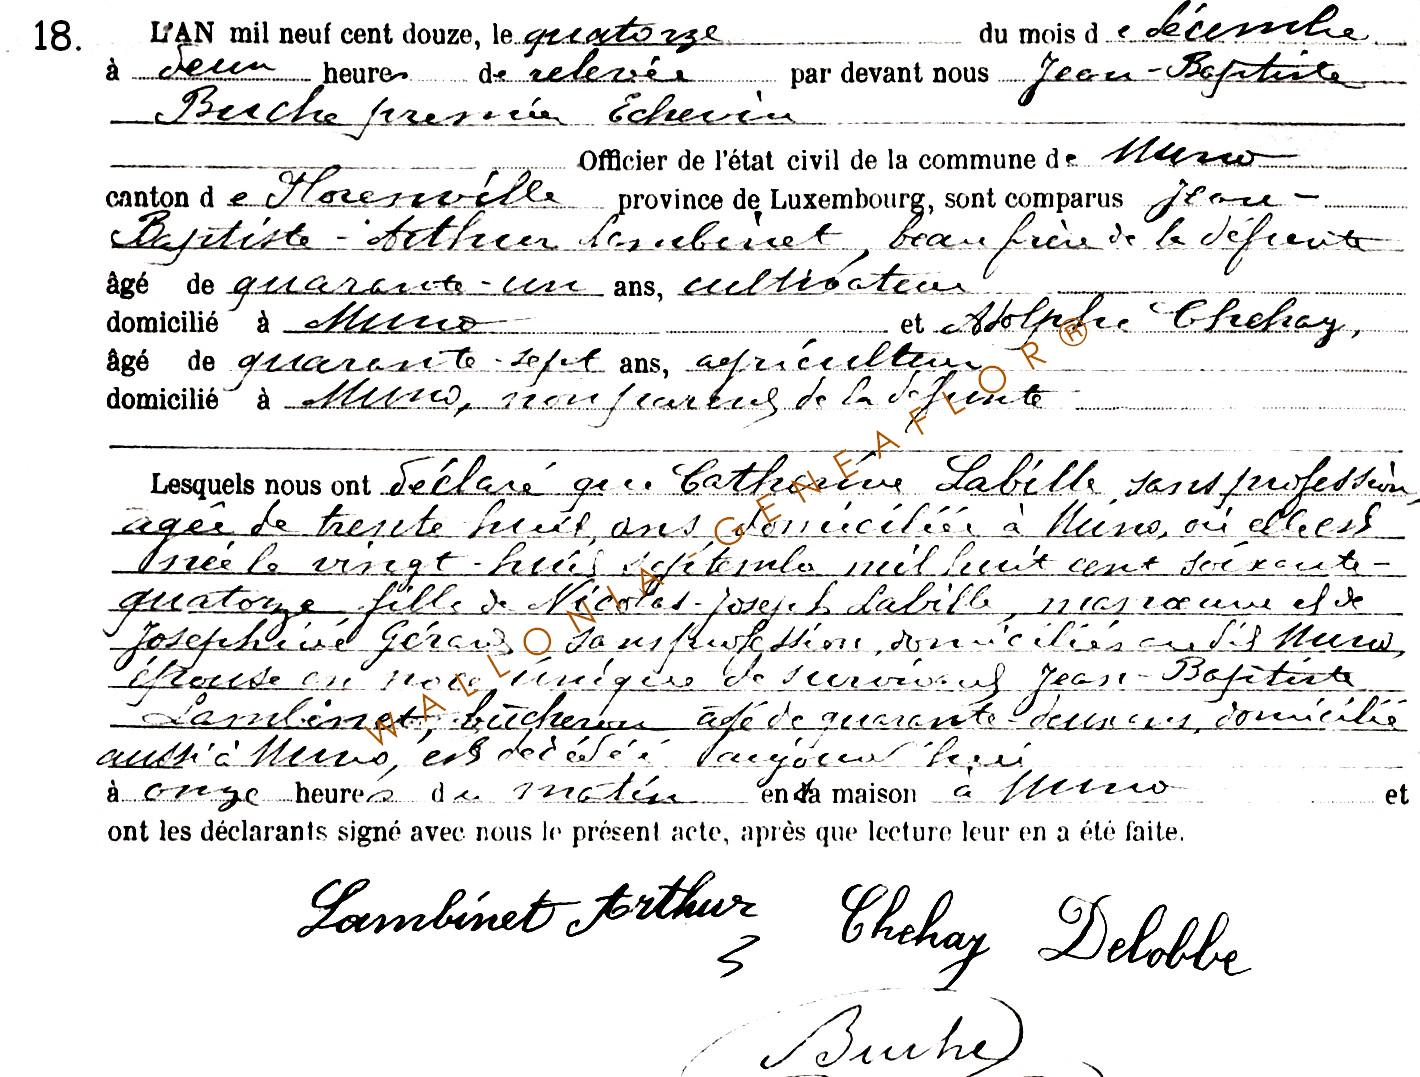 18. L'AN mil neuf cent douze, le quatorze du mois de décembre
à deux heures de relevée par devant nous Jean-Baptiste
Buche premier Echevin
Officier de l'état civil de la commune de Muno
canton de Florenville province de Luxembourg, sont comparus Jean-
Baptiste-Arthur Lambinet, beau frère de la défunte
âgé de quarante-un ans, cultivateur
domicilié à Muno et Adolphe Chehay,
âgé de quarante-sept ans, agriculteur
domicilié à Muno, non parent de la défunte
Lesquels nous ont déclaré que Catherine Labille, sans profession,
agée de trente huit ans, domiciliée à Muno, où elle est
née le vingt-huit septembre mil huit cent soixante-
quatorze fille de Nicolas-Joseph Labille, manœuvre et de
Joséphine Gérard sans profession, domiciliés au dit Muno,
épouse en noce unique de survivant Jean-Baptiste
Lambinet, bûcheron agé de quarante-deux ans, domicilié
aussi à Muno, est décédée aujourd'hui
à onze heures du matin en sa maison à Muno et
ont les déclarants signé avec nous le présent acte, après que lecture leur en a été faite.
WALLONIA-GENEAFLOR®
Lambinet Arthur Chehay Delobbe
Buche